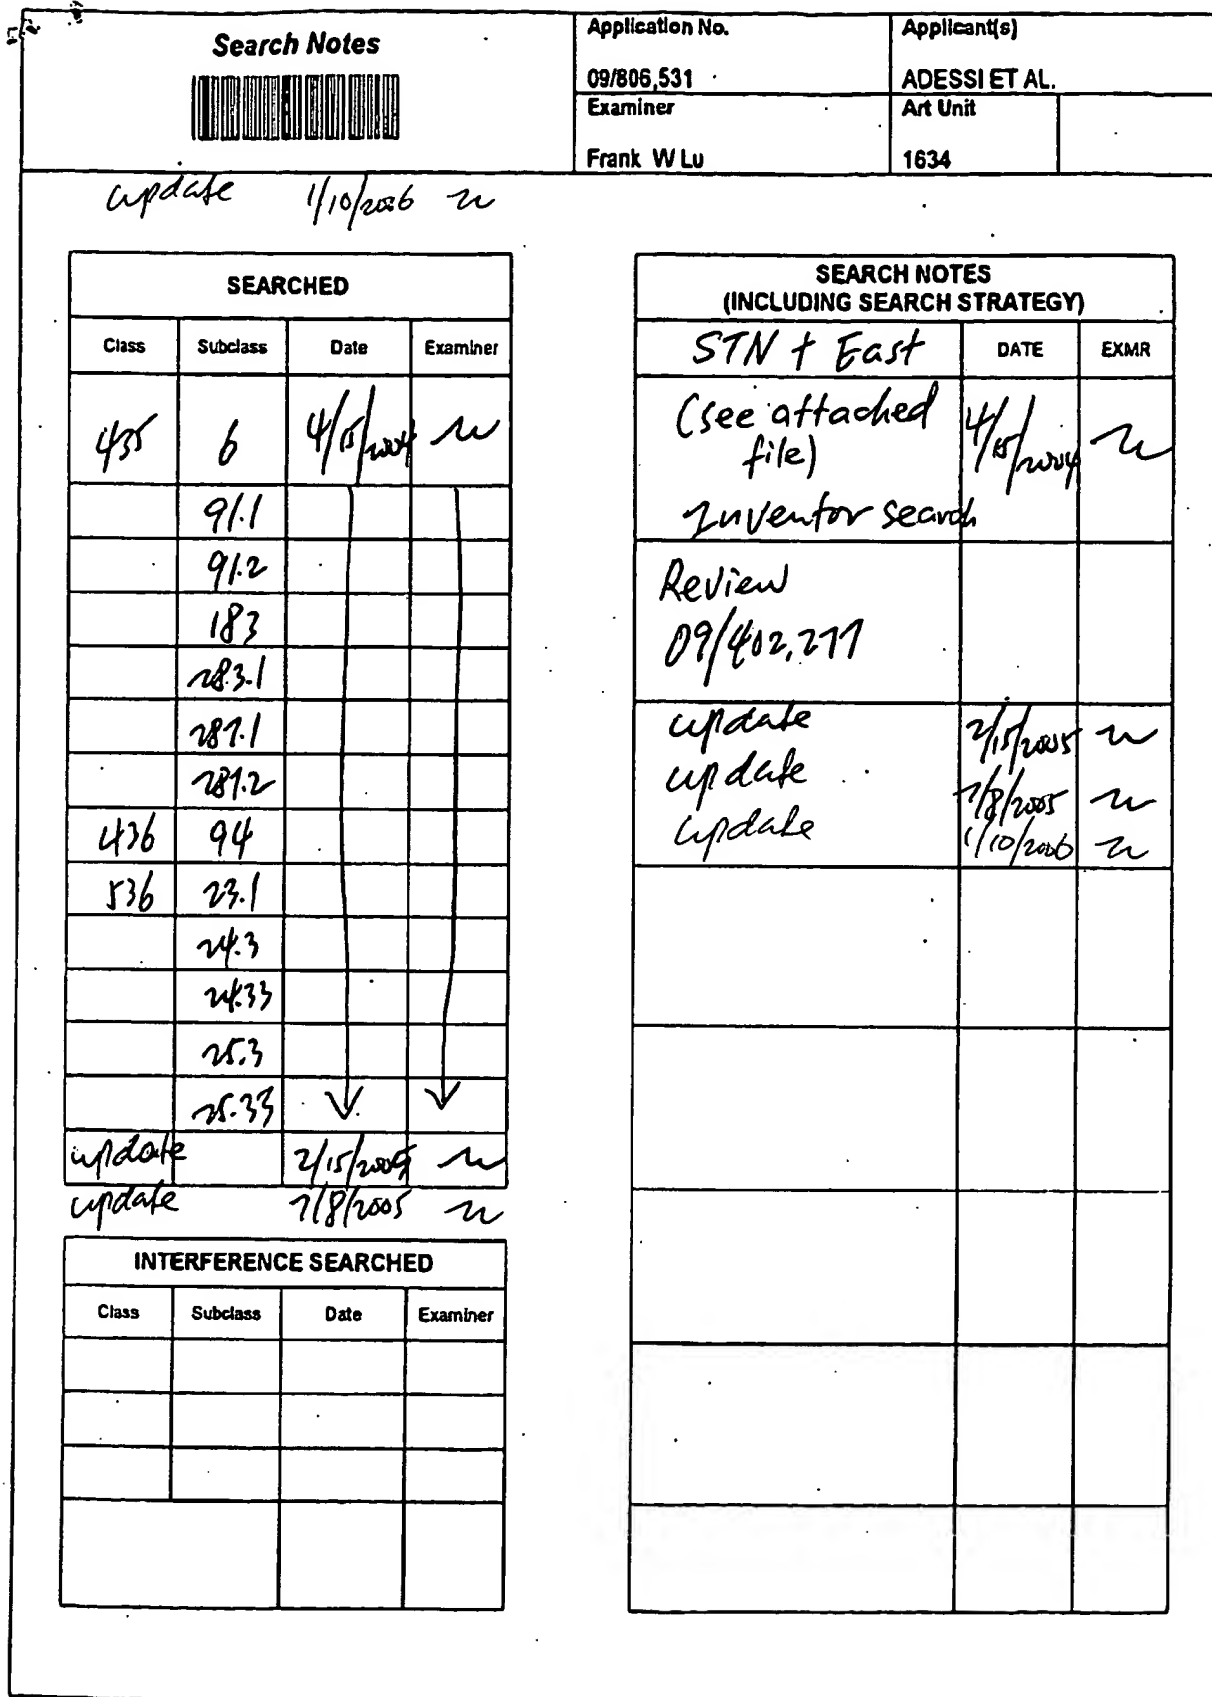 Search Notes
Application No.
09/806,531
Applicant(s)
ADESSI ET AL.
Examiner
Frank W Lu
Art Unit
1634
update 1/10/2006
SEARCHED
Class Subclass Date Examiner
435 6 4/15/2004
91.1
91.2
183
283.1
287.1
287.2
436 94
536 23.1
24.3
24.33
25.3
25.33
update 2/15/2005
update 7/8/2005
INTERFERENCE SEARCHED
Class Subclass Date Examiner
SEARCH NOTES
(INCLUDING SEARCH STRATEGY)
STN + East DATE EXMR
(see attached file) 4/15/2004
Inventor search
Review
09/402,277
update 2/15/2005
update 7/8/2005
update 1/10/2006